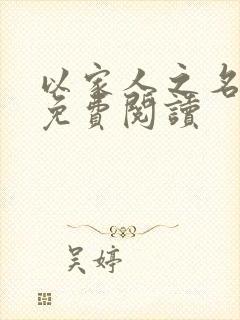 以家人之名
免費閱讀
吴婷